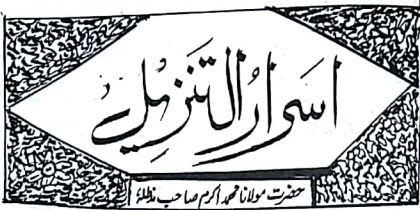 اسرارُ التنزیل
حضرت مولانا محمد اکرم صاحب مدظلہٗ